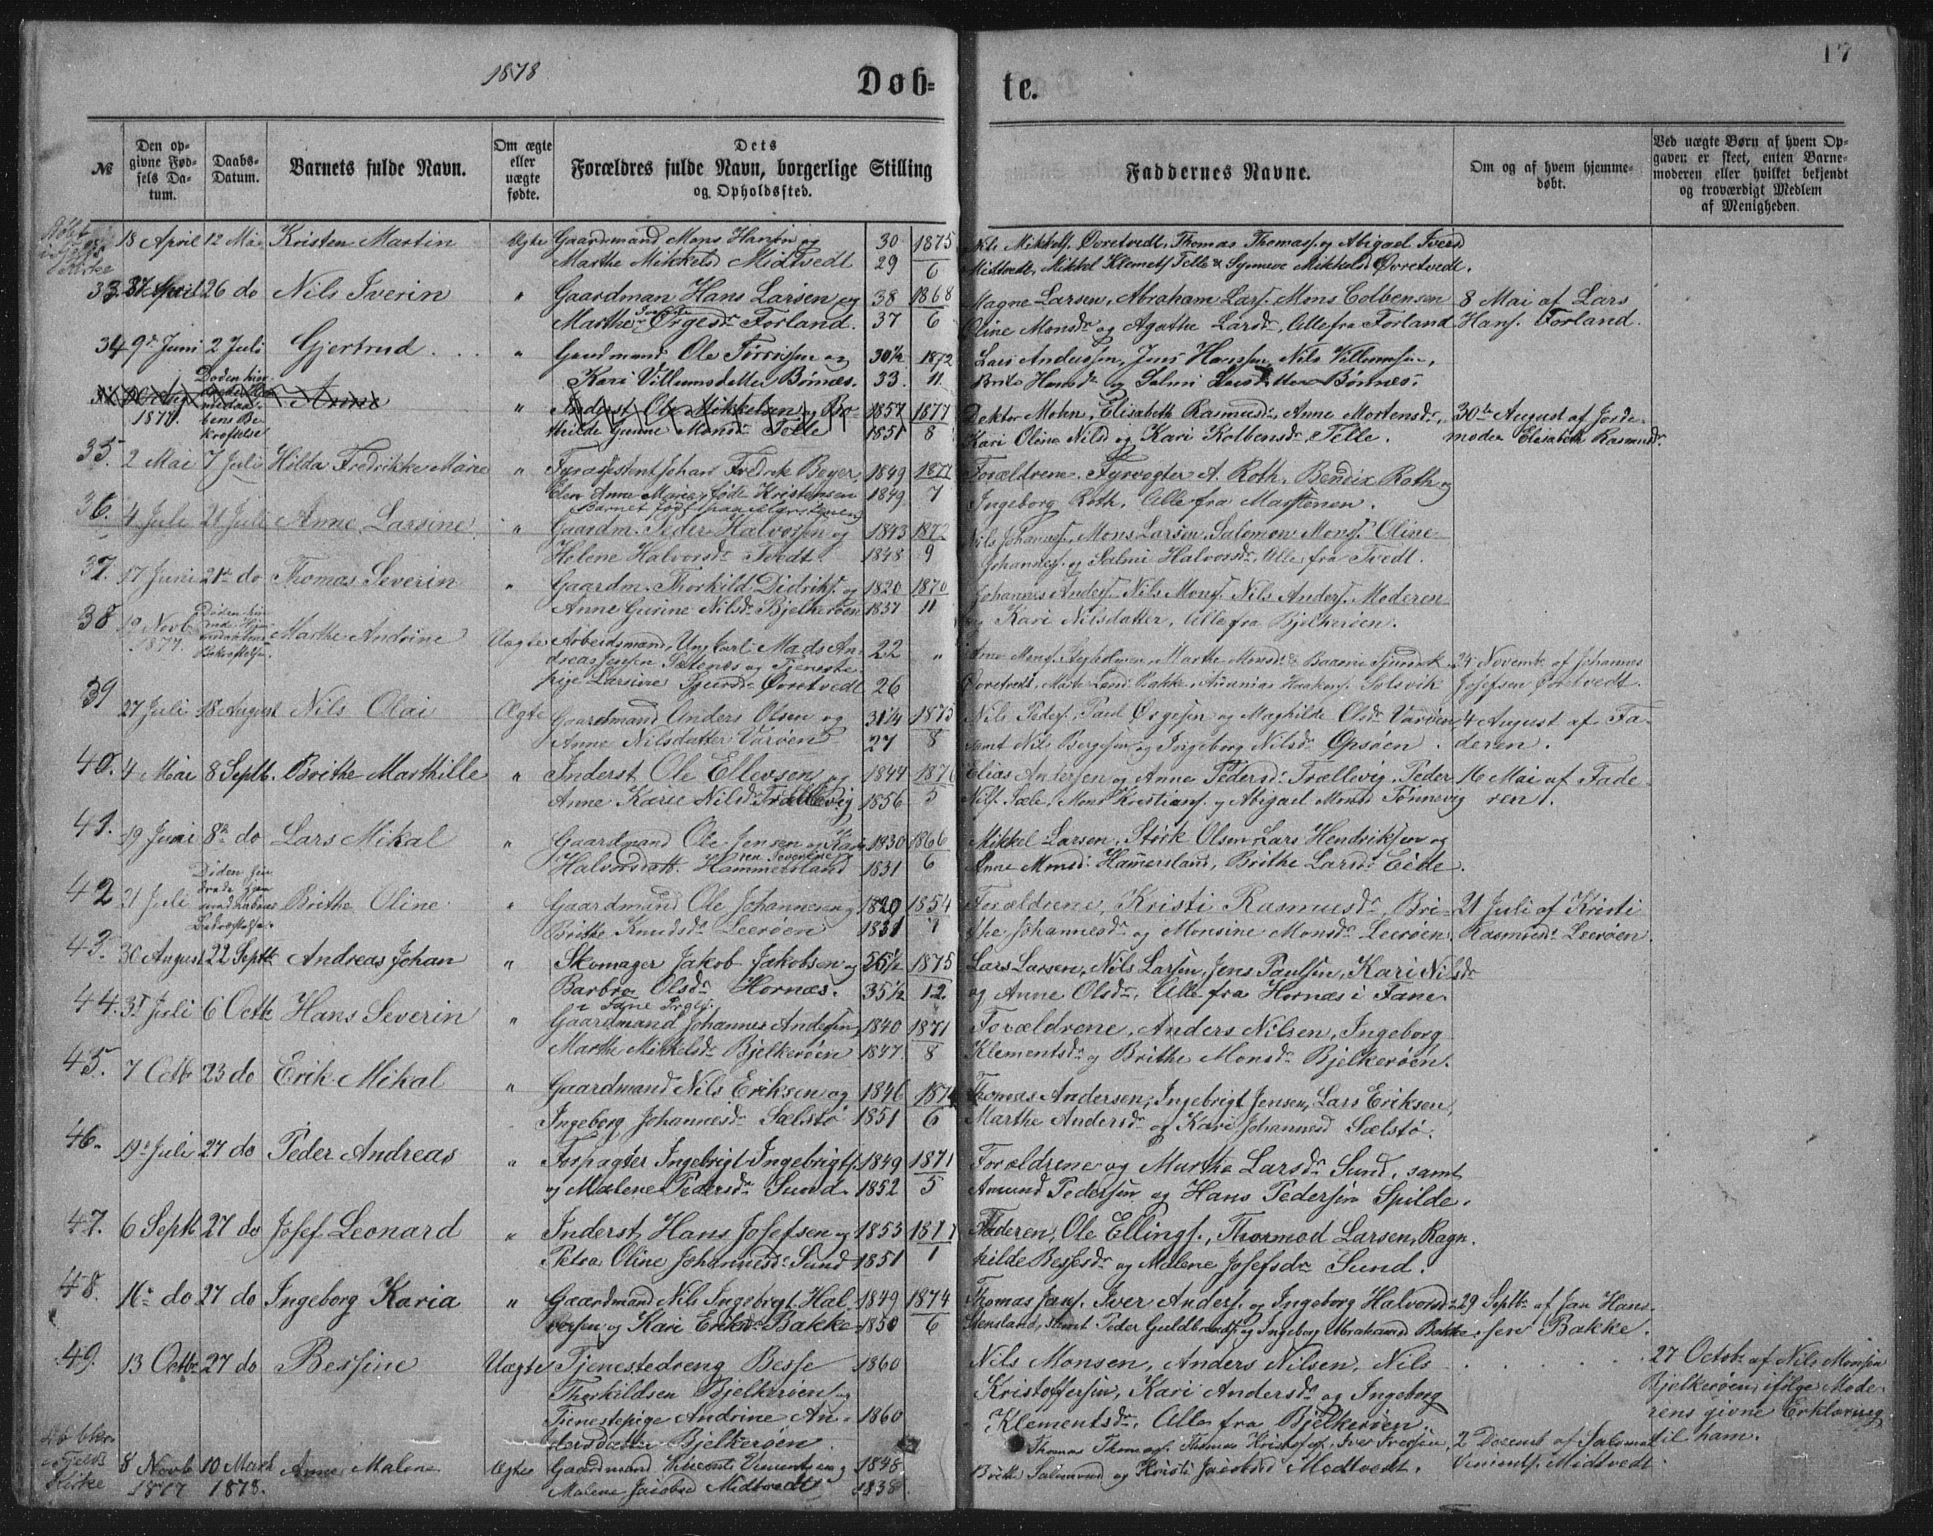 1878
17
Døb-
te.
№
Den opgivne Fødsels Datum.
Daabs-Datum.
Barnets fulde Navn.
Om ægte eller uægte fødte.
Dets Forældres fulde Navn, borgerlige Stilling og Opholdssted.
Faddernes Navne.
Om og af hvem hjemmedøbt.
Ved uægte Børn af hvem Opgaven er skeet, enten Barnemoderen eller hvilket bekjendt og troværdigt Medlem af Menigheden.
Kirke 18 April 12 Mai Kristen Martin Ægte Gaardmand Mons Hansen og 30 1875 Nils Mikkels. Øvretvedt, Thomas Thomass. og Abigael Iversd
Marthe Mikkelsd Midtvedt 29 6 Midtvedt, Mikkel Klemets. Telle & Synneve Mikkelsd Øvretvedt.
33. 26 do Nils Iverin " Gaardman Hans Larsen og 38 1868 Magne Larsen, Abraham Lars. Mons Colbensen 8 Mai af Lars
Marthe Ørgesdr Forland. 37 6 Oline Monsdr og Agathe Larsdr, Alle fra Forland Hans. Forland.
34 9de Juni 2 Juli Gjertrud " Gardmand Ole og 30½ 1872 Lars Anderssen, Jens Hanssen, Nils Villumsen,
Kari Villumsdatter Børnæs. 33. 11 Brite Hansdr og Salmi Larsdatter Børnæs.
1878. Anne " Inderst Ole Mikkelsen og Bo- 1857 1877 Doktor Mohn, Elisabeth Rasmusdr, Anne Mortensdr, 30te August af Jorde-
thilde Gurine Monsdr Telle 1851 8 Kari Olina Nilsd og Kari Kolbensdr Telle. moder Elisabeth Rasmusdr
35. 2 Mai 7 Juli Hilda Fredrikke Marie " Fyrassistent Johan Fredrik Beyer, 1849 1877 Forældrene, Fyrvogter A. Roth, Bendix Roth og
Elen Anne Maria, føde Kristensen 1849 7 Ingeborg Roth. Alle fra Marstenen.
(Barnet født paa Marstenen)
36. 4 Juli 21 Juli Anne Larsine " Gaardm. Peder Halvorsen og 1843 1872 Nils Johanness. Mons Larsen, Salomon Mons. Oline
Helene Halvorsdr Tvedt. 1848 9 Johannes. og Salmi Halvorsdr, Alle fra Tvedt.
37. 17 Juni 21de do Thomas Severin " Gaardm. Thorkild Didriks. og 1820 1870 Johannes Anders. Nils Mons. Nils Anders. Moderen
Anne Gurine Nilsdr Bjelkerøen 1837 11 og Kari Nilsdatter, Alle fra Bjelkerøen.
38 19 Novb 1877. Marthe Andrine Uægte Arbeidsmand, Ungkarl Mads An- 22 " Mons. Marthe Monsd &
dreassen og Tjeneste- 24 Novemb. af Johannes
pige Larsine Sjursdr Øvretvedt 26 Solsvik Josefsen Øvretvedt.
39 27 Juli 18 August Nils Olai Ægte Gaardmand Anders Olsen og 31¼ 1875 Nils Peders. Paul Ørgesen og Maghilde Olsdr Varøen 4 August af Fa-
Anne Nilsdatter Varøen 27 8 samt Nils Børgesen og Ingeborg Nilsdr Opsøen. deren.
40. 4 Mai 8 Septb. Brithe Marthille " Inderst Ole Ellevsen og 1844 1876 Elias Andersen og Anne Pedersdr Trællevig, Peder 16 Mai af Fade-
Anne Karie Nilsdr Trællevig 1856 5 Nils. Sæle, Mons Kristians. og Abigael Monsd Tønnevig ren.
41. 19 Juni 8de do Lars Mikal " Gaardmand Ole Jensen og Kari 1830 1866 Mikkel Larsen, Størk Olsen, Lars Hendriksen og
Halvorsdatt. Hammersland 1831 6 Anne Monsd. Hamersland, Brithe Larsdr Eide.
42 21 Juli Brithe Oline " Gaardmand Ole Johannesen og 1829 1854 Forældrene, Kristi Rasmusdr, Bri- 21 Juli af Kristi
Brithe Knudsdr Leerøen 1831 7 the Johannesdr og Monsine Monsdr Leerøen. Rasmusdr Leerøen.
43. 30 August 22 Septb Andreas Johan " Skomager Jakob Jakobsen og 1875 Lars Larsen, Nils Larsen, Jens Paulsen, Kari Nilsdr
Barbro Olsdr Hornæs. 35½ 12. og Anne Olsdr, Alle fra Hornæs i Fane.
i Fane Prgjld.
44. 31 Juli 6 Octb Hans Severin " Gaardmand Johannes Andersen 1840 1871 Forældrene, Anders Nilsen, Ingeborg
Marthe Mikkelsdr Bjelkerøen 1847. 8 Klementsdr og Brithe Monsdr Bjelkerøen.
45. 7 Octb 23 do Erik Mikal " Gaardmand Nils Eriksen og 1846 187 Thomas Andersen, Ingebrigt Jensen, Lars Eriksen,
Ingeborg Johannesdr Sælstø 1851 6 Marthe Andersdr og Kari Johannesd Sælstø.
46. 19de Juli 27 do Peder Andreas " Forpagter Ingebrigt Ingebrigts. 1849 1871 Forældrene og Marthe Larsdr Sund, samt
og Malene Pedersdr Sund. 1852 5 Amund Pedersen og Hans Pedersen Spilde.
47. 6 Septb 27 do Josef Leonard " Inderst Hans Josefsen og 1853 1877 Faderen, Ole Ellings., Thormod Larsen, Ragn-
Petra Oline Johannesdr Sund 1851 1 hilde Besesdr og Malene Josefsdr Sund.
48. 16de do 27 do Ingeborg Karia " Gaardmand Nils Ingebrigt Hal- 1849 1874 Thomas Jans. Iver Anders. og Ingeborg Halvorsd 29 Septb. af Jan Hans-
vorsen og Kari Eriksdr Bakke 1850 6 Stensland, samt Peder Guldbrands. og Ingeborg Abrahamsd Bakke. sen Bakke.
49. 13 Octbr 27 do Bessine Uægte Tjenestedreng Besse 1860 Nils Monsen, Anders Nilsen, Nils 27 Octob. af Nils Monsen
Thorkildsen Bjelkerøen og Kristoffersen, Kari Andersdr og Ingeborg Bjelkerøen, ifølge Mode-
Tjenestepige Andrine An- 1860 Klementsdr, Alle fra Bjelkerøen. rens givne Erklæring
dersdatter Bjelkerøen. Thomas Thomas. Thomas Kristoffers. Iver Iversen, 2 Decemb af Salomon til ham.
Kirke 8 Novb 1877 10 Marts 1878. Anne Malene Ægte Gaardmand Vinsentsen og 1848 Brithe Salmonsd og Kristi Jacobsd Medtvedt. Vinsents. Midtvedt.
Malene Jacobsd Midtvedt 1838